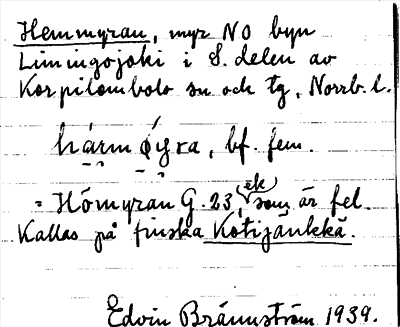 Hemmyran, myr NO byn
Limingojoki i S. delen av
Korpilombolo sn och tg, Norrb. l.
hárm ǿyra, bf. fem.
= Hömyran G. 23, ek som är fel.
Kallas på finska Kotijänkkä.
Edvin Brännström 1939.